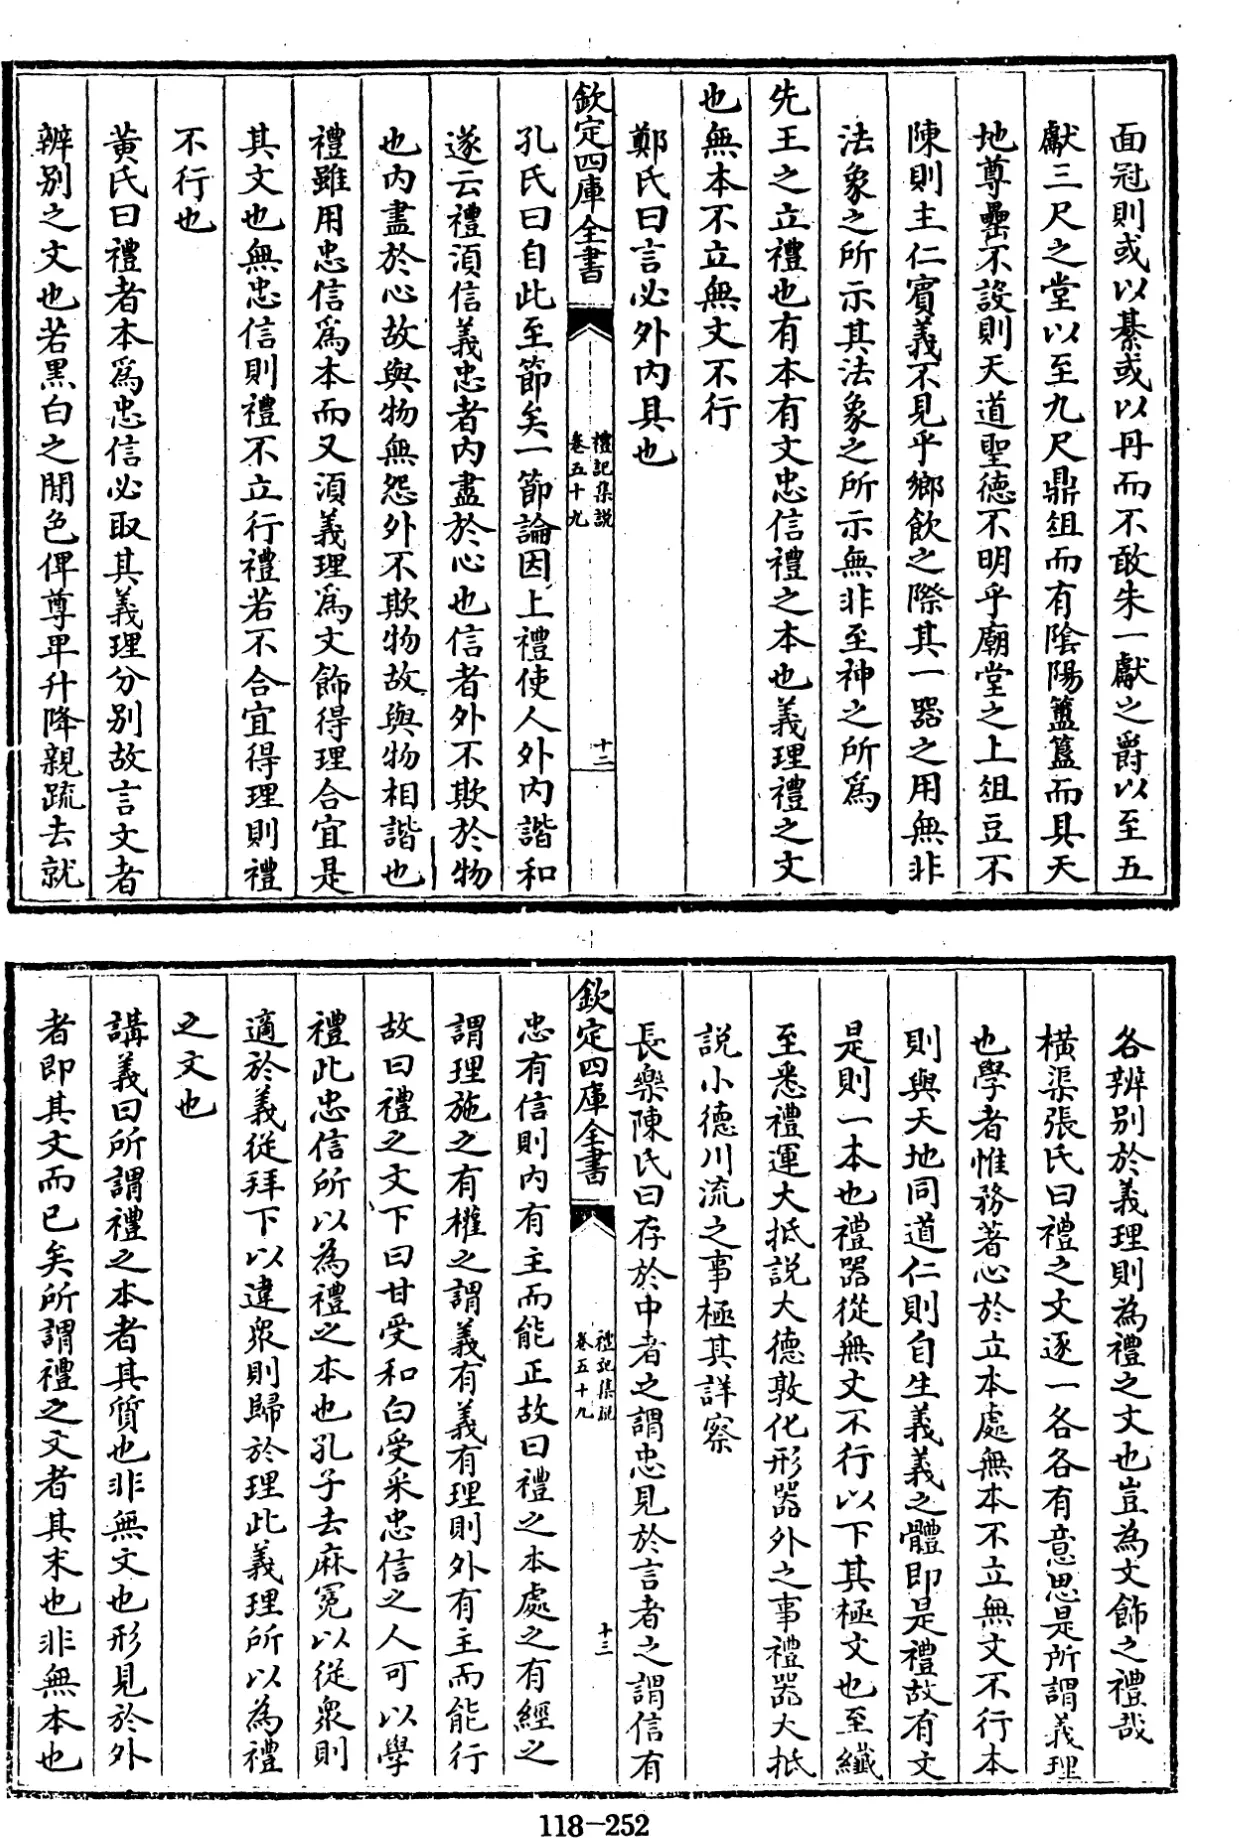 面冠則或以綦或以丹而不敢朱一獻之爵以至五
獻三尺之堂以至九尺鼎俎而有陰陽簠簋而具天
地尊罍不設則天道聖德不明乎廟堂之上俎豆不
陳則主仁賓義不見乎鄉飲之際其一器之用無非
法象之所示其法象之所示無非至神之所爲
先王之立禮也有本有文忠信禮之本也義理禮之文
也無本不立無文不行
鄭氏曰言必外内具也
欽定四庫全書
禮記集說
卷五十九
十二
孔氏曰自此至節矣一節論因上禮使人外内諧和
遂云禮須信義忠者内盡於心也信者外不欺於物
也内盡於心故與物無怨外不欺物故與物相諧也
禮雖用忠信爲本而又須義理爲文飾得理合宜是
其文也無忠信則禮不立行禮若不合宜得理則禮
不行也
黄氏曰禮者本爲忠信必取其義理分别故言文者
辨别之文也若黒白之間色俾尊卑升降親疏去就
各辨别於義理則為禮之文也豈為文飾之禮哉
横渠張氏曰禮之文逐一各各有意思是所謂義理
也學者惟務著心於立本處無本不立無文不行本
則與天地同道仁則自生義義之體即是禮故有文
是則一本也禮器從無文不行以下其極文也至纖
至悉禮運大抵説大德敦化形器外之事禮器大抵
説小德川流之事極其詳察
長樂陳氏曰存於中者之謂忠見於言者之謂信有
欽定四庫全書
禮記集說
卷五十九
十三
忠有信則内有主而能正故曰禮之本處之有經之
謂理施之有權之謂義有義有理則外有主而能行
故曰禮之文下曰甘受和白受采忠信之人可以學
禮此忠信所以為禮之本也孔子去麻冕以從衆則
適於義從拜下以違衆則歸於理此義理所以為禮
之文也
講義曰所謂禮之本者其質也非無文也形見於外
者即其文而已矣所謂禮之文者其末也非無本也
118-252